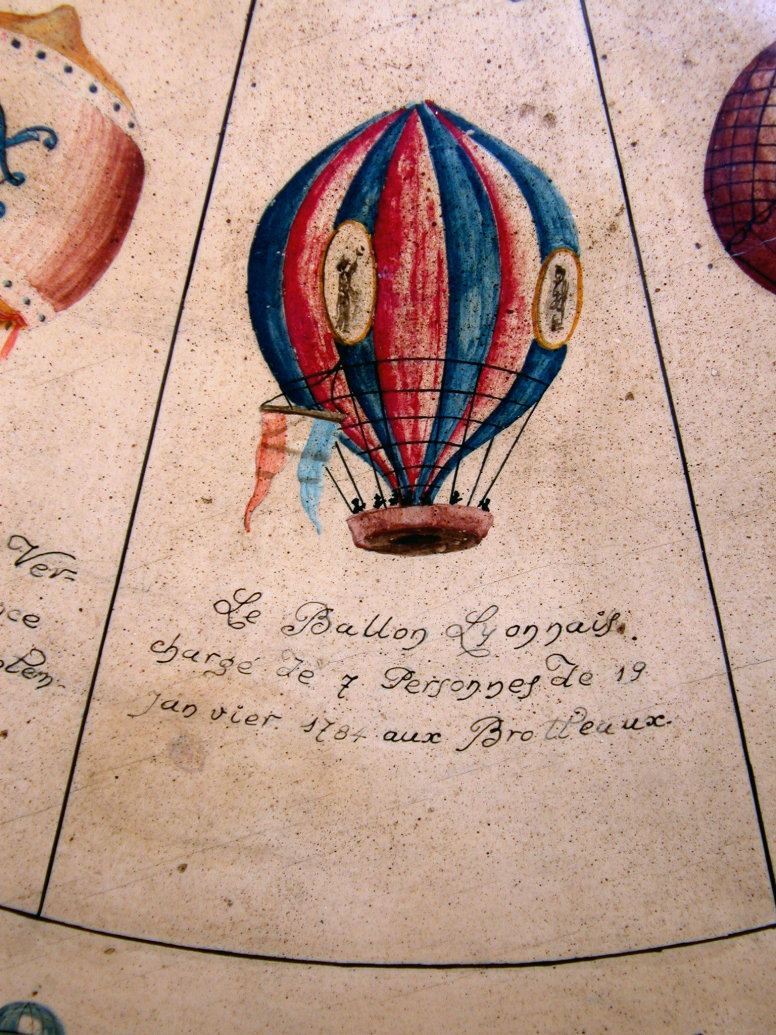 Le Ballon Lyonnais.
chargé de 7 Personnes de 19
Janvier 1784 aux Brotteaux.
Ver-
ce